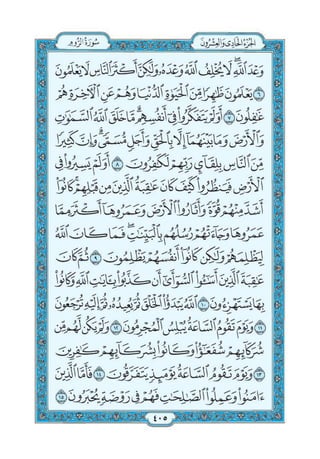 الجزء الحادي والعشرون سورة الروم
وَعْدَ اللَّهِ لَا يُخْلِفُ اللَّهُ وَعْدَهُ وَلَكِنَّ أَكْثَرَ النَّاسِ لَا يَعْلَمُونَ
٦ يَعْلَمُونَ ظَاهِرًا مِنَ الْحَيَاةِ الدُّنْيَا وَهُمْ عَنِ الْآخِرَةِ هُمْ
غَافِلُونَ ٧ أَوَلَمْ يَتَفَكَّرُوا فِي أَنْفُسِهِمْ مَا خَلَقَ اللَّهُ السَّمَاوَاتِ
وَالْأَرْضَ وَمَا بَيْنَهُمَا إِلَّا بِالْحَقِّ وَأَجَلٍ مُسَمًّى وَإِنَّ كَثِيرًا
مِنَ النَّاسِ بِلِقَاءِ رَبِّهِمْ لَكَافِرُونَ ٨ أَوَلَمْ يَسِيرُوا فِي
الْأَرْضِ فَيَنْظُرُوا كَيْفَ كَانَ عَاقِبَةُ الَّذِينَ مِنْ قَبْلِهِمْ كَانُوا
أَشَدَّ مِنْهُمْ قُوَّةً وَأَثَارُوا الْأَرْضَ وَعَمَرُوهَا أَكْثَرَ مِمَّا
عَمَرُوهَا وَجَاءَتْهُمْ رُسُلُهُمْ بِالْبَيِّنَاتِ فَمَا كَانَ اللَّهُ
لِيَظْلِمَهُمْ وَلَكِنْ كَانُوا أَنْفُسَهُمْ يَظْلِمُونَ ٩ ثُمَّ كَانَ
عَاقِبَةَ الَّذِينَ أَسَاءُوا السُّوأَى أَنْ كَذَّبُوا بِآيَاتِ اللَّهِ وَكَانُوا
بِهَا يَسْتَهْزِئُونَ ١٠ اللَّهُ يَبْدَأُ الْخَلْقَ ثُمَّ يُعِيدُهُ ثُمَّ إِلَيْهِ تُرْجَعُونَ
١١ وَيَوْمَ تَقُومُ السَّاعَةُ يُبْلِسُ الْمُجْرِمُونَ ١٢ وَلَمْ يَكُنْ لَهُمْ مِنْ
شُرَكَائِهِمْ شُفَعَاءُ وَكَانُوا بِشُرَكَائِهِمْ كَافِرِينَ
١٣ وَيَوْمَ تَقُومُ السَّاعَةُ يَوْمَئِذٍ يَتَفَرَّقُونَ ١٤ فَأَمَّا الَّذِينَ
آمَنُوا وَعَمِلُوا الصَّالِحَاتِ فَهُمْ فِي رَوْضَةٍ يُحْبَرُونَ ١٥
٤٠٥